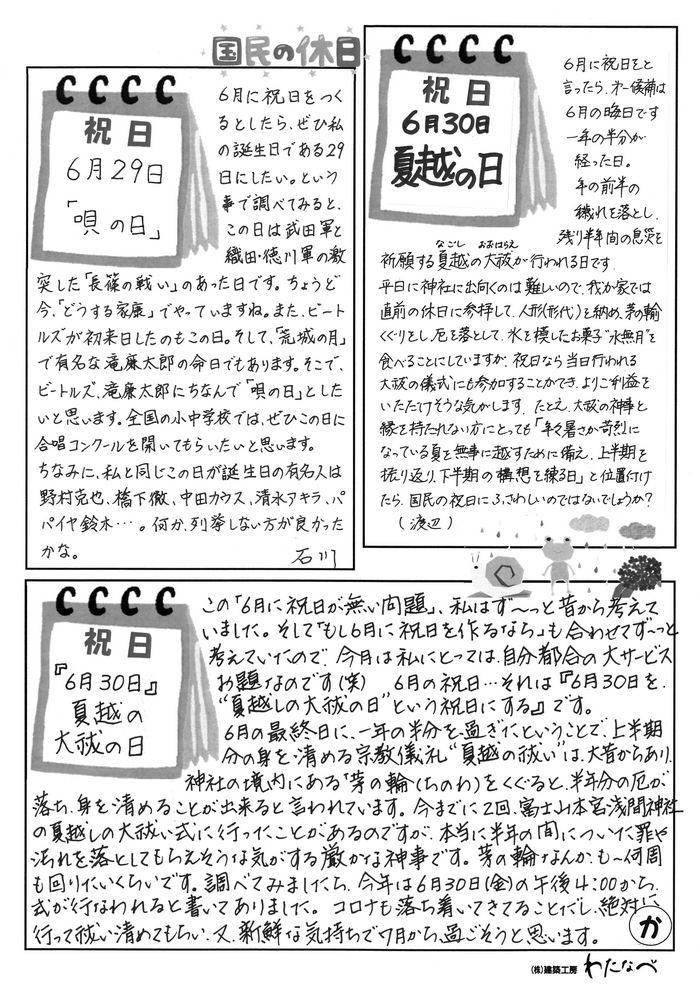 国民の休日
CCCC
祝日
6月29日
「唄の日」
6月に祝日をつく
るとしたら、ぜひ私
の誕生日である29
日にしたい。という
事で調べてみると、
この日は武田軍と
織田・徳川軍の激
突した「長篠の戦い」のあった日です。ちょうど
今、「どうする家康」でやっていますね。また、ビート
ルズが初来日したのもこの日。そして、「荒城の月」
で有名な滝廉太郎の命日でもあります。そこで、
ビートルズ、滝廉太郎にちなんで「唄の日」とした
いと思います。全国の小中学校では、ぜひこの日に
合唱コンクールを開いてもらいたいと思います。
ちなみに、私と同じこの日が誕生日の有名人は
野村克也、橋下徹、中田カウス、清水アキラ、パ
パイヤ鈴木…。何か、列挙しない方が良かった
かな。
石川
CCCC
祝日
6月30日
夏越の日
6月に祝日をと
言ったら、才一候補は
6月の晦日です
一年の半分が
経った日。
年の前半の
穢れを落とし、
残り半年間の息災を
なごし おおはらえ
祈願する夏越の大祓が行われる日です。
平日に神社に出向くのは難しいので、我が家では
直前の休日に参拝して、人形(形代)を納め、茅の輪
くぐりをし、厄を落として、氷を模したお菓子"水無月"を
食べることにしていますが、祝日なら当日行われる
大祓の儀式にも参加することができ、よりご利益を
いただけそうな気がします。たとえ、大祓の神事と
縁を持たれない方にとっても「年々暑さが苛烈に
になっている夏を無事に越すために備え、上半期を
振り返り、下半期の構想を練る日」と位置付け
たら、国民の祝日にふさわしいのではないでしょうか?
(渡辺)
CCCC
祝日
『6月30日』
夏越の
大祓の日
この「6月に祝日が無い問題」、私はず〜っと昔から考えて
いました。そして「もし6月に祝日を作るなら」も合わせてず〜っと
考えていたので、今月は私にとっては、自分都合の大サービス
お題なのです(笑) 6月の祝日…それは『6月30日を、
"夏越しの大祓の日"という祝日にする』です。
6月の最終日に、一年の半分を過ぎたということで、上半期
分の身を清める宗教儀礼"夏越の祓い"は、大昔からあり、
神社の境内にある「茅の輪(ちのわ)をくぐると、半年分の厄が
落ち、身を清めることが出来ると言われています。今までに2回、富士山本宮浅間神社
の夏越しの大祓い式に行ったことがあるのですが、本当に半年の間についた罪や
汚れを落としてもらえそうな気がする厳かな神事です。茅の輪なんか、も〜何周
も回りたいくらいです。調べてみましたら、今年は6月30日(金)の午後4:00から、
式が行なわれると書いてありました。コロナも落ち着いてきてることだし、絶対に
行って祓い清めてもらい、又、新鮮な気持ちで7月から過ごそうと思います。
か
(株)建築工房 わたなべ